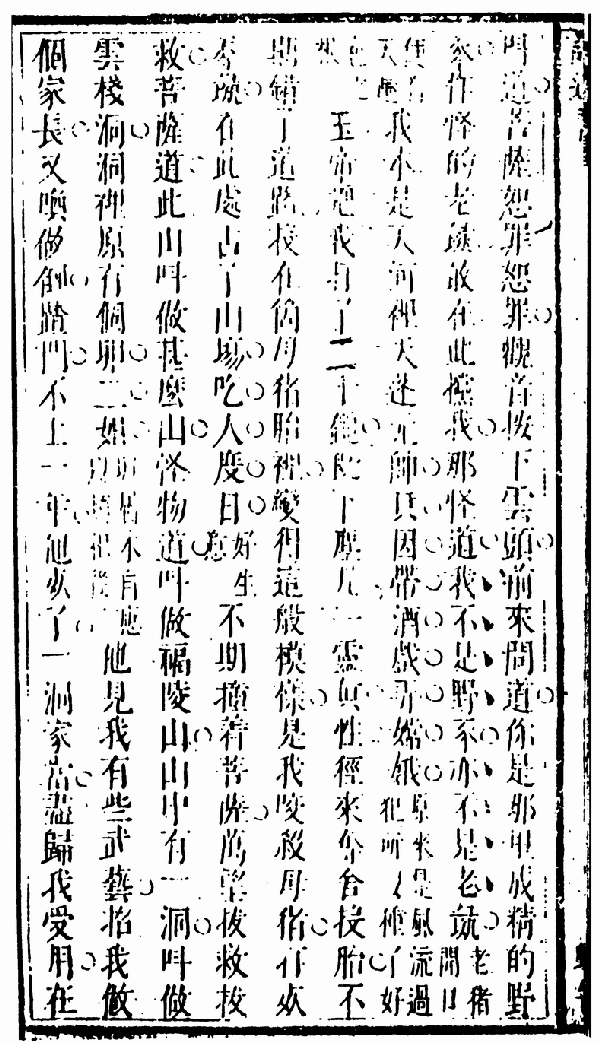 門道菩薩恕罪恕罪觀音按下雲頭前來問道你是那里成精的野
豕作怪的老彘敢在此攩我那怪道我不是野豕亦不是老彘老猪開口
我本是天河裡天蓬元帥只因帶酒戲弄嫦娥原來是風流過犯所以種了好
玉帝把我打了二千鎚貶下塵凡一靈真性徑來奪舍投胎不
期錯了道路投在個母猪胎裡變得這般模樣是我咬殺母猪
在此處占了山場吃人度日好生不期撞着菩薩萬望拔救拔
救菩薩道此山叫做甚麼山怪物道叫做福陵山山中有一洞叫做
雲棧洞洞裡原有個卵二姐他見我有些武藝招我做
個家長又喚做倒蹅門不上一年他死了一洞家當盡歸我受用在